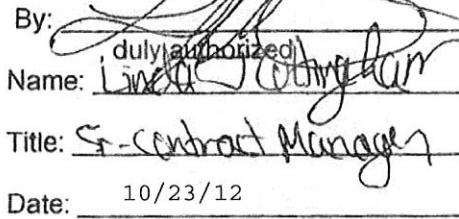 By:
duly authorized
Name: Linda Cottingham
Title: Sr-Contract Manager
Date: 10/23/12